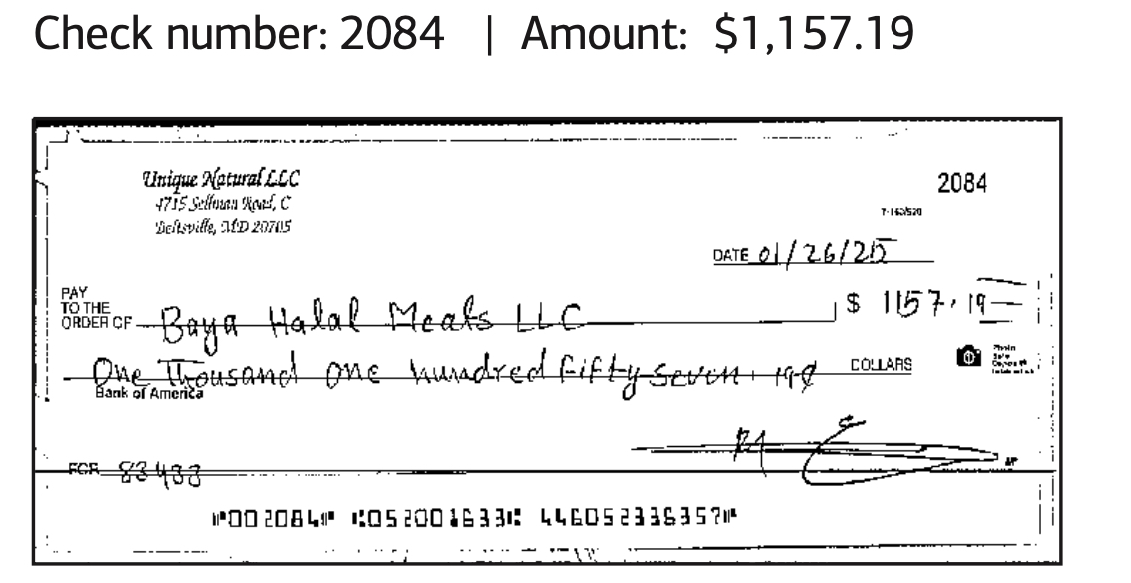 Check number: 2084 | Amount: $1,157.19
Unique Natural LLC
4715 Sellman Road, C
Beltsville, MD 20705
2084
7-163/520
DATE 01/26/25
PAY TO THE ORDER OF Baya Halal Meats LLC $ 1157.19
One Thousand one hundred fifty seven . 19¢ DOLLARS
Bank of America
FOR 83488
⑈002084⑈ ⑆052001633⑆ 446052336357⑈